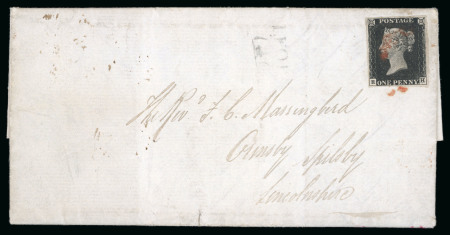 POSTAGE
ONE PENNY
The Revd F. C. Massingberd
Ormsby Spilsby
Lincolnshire